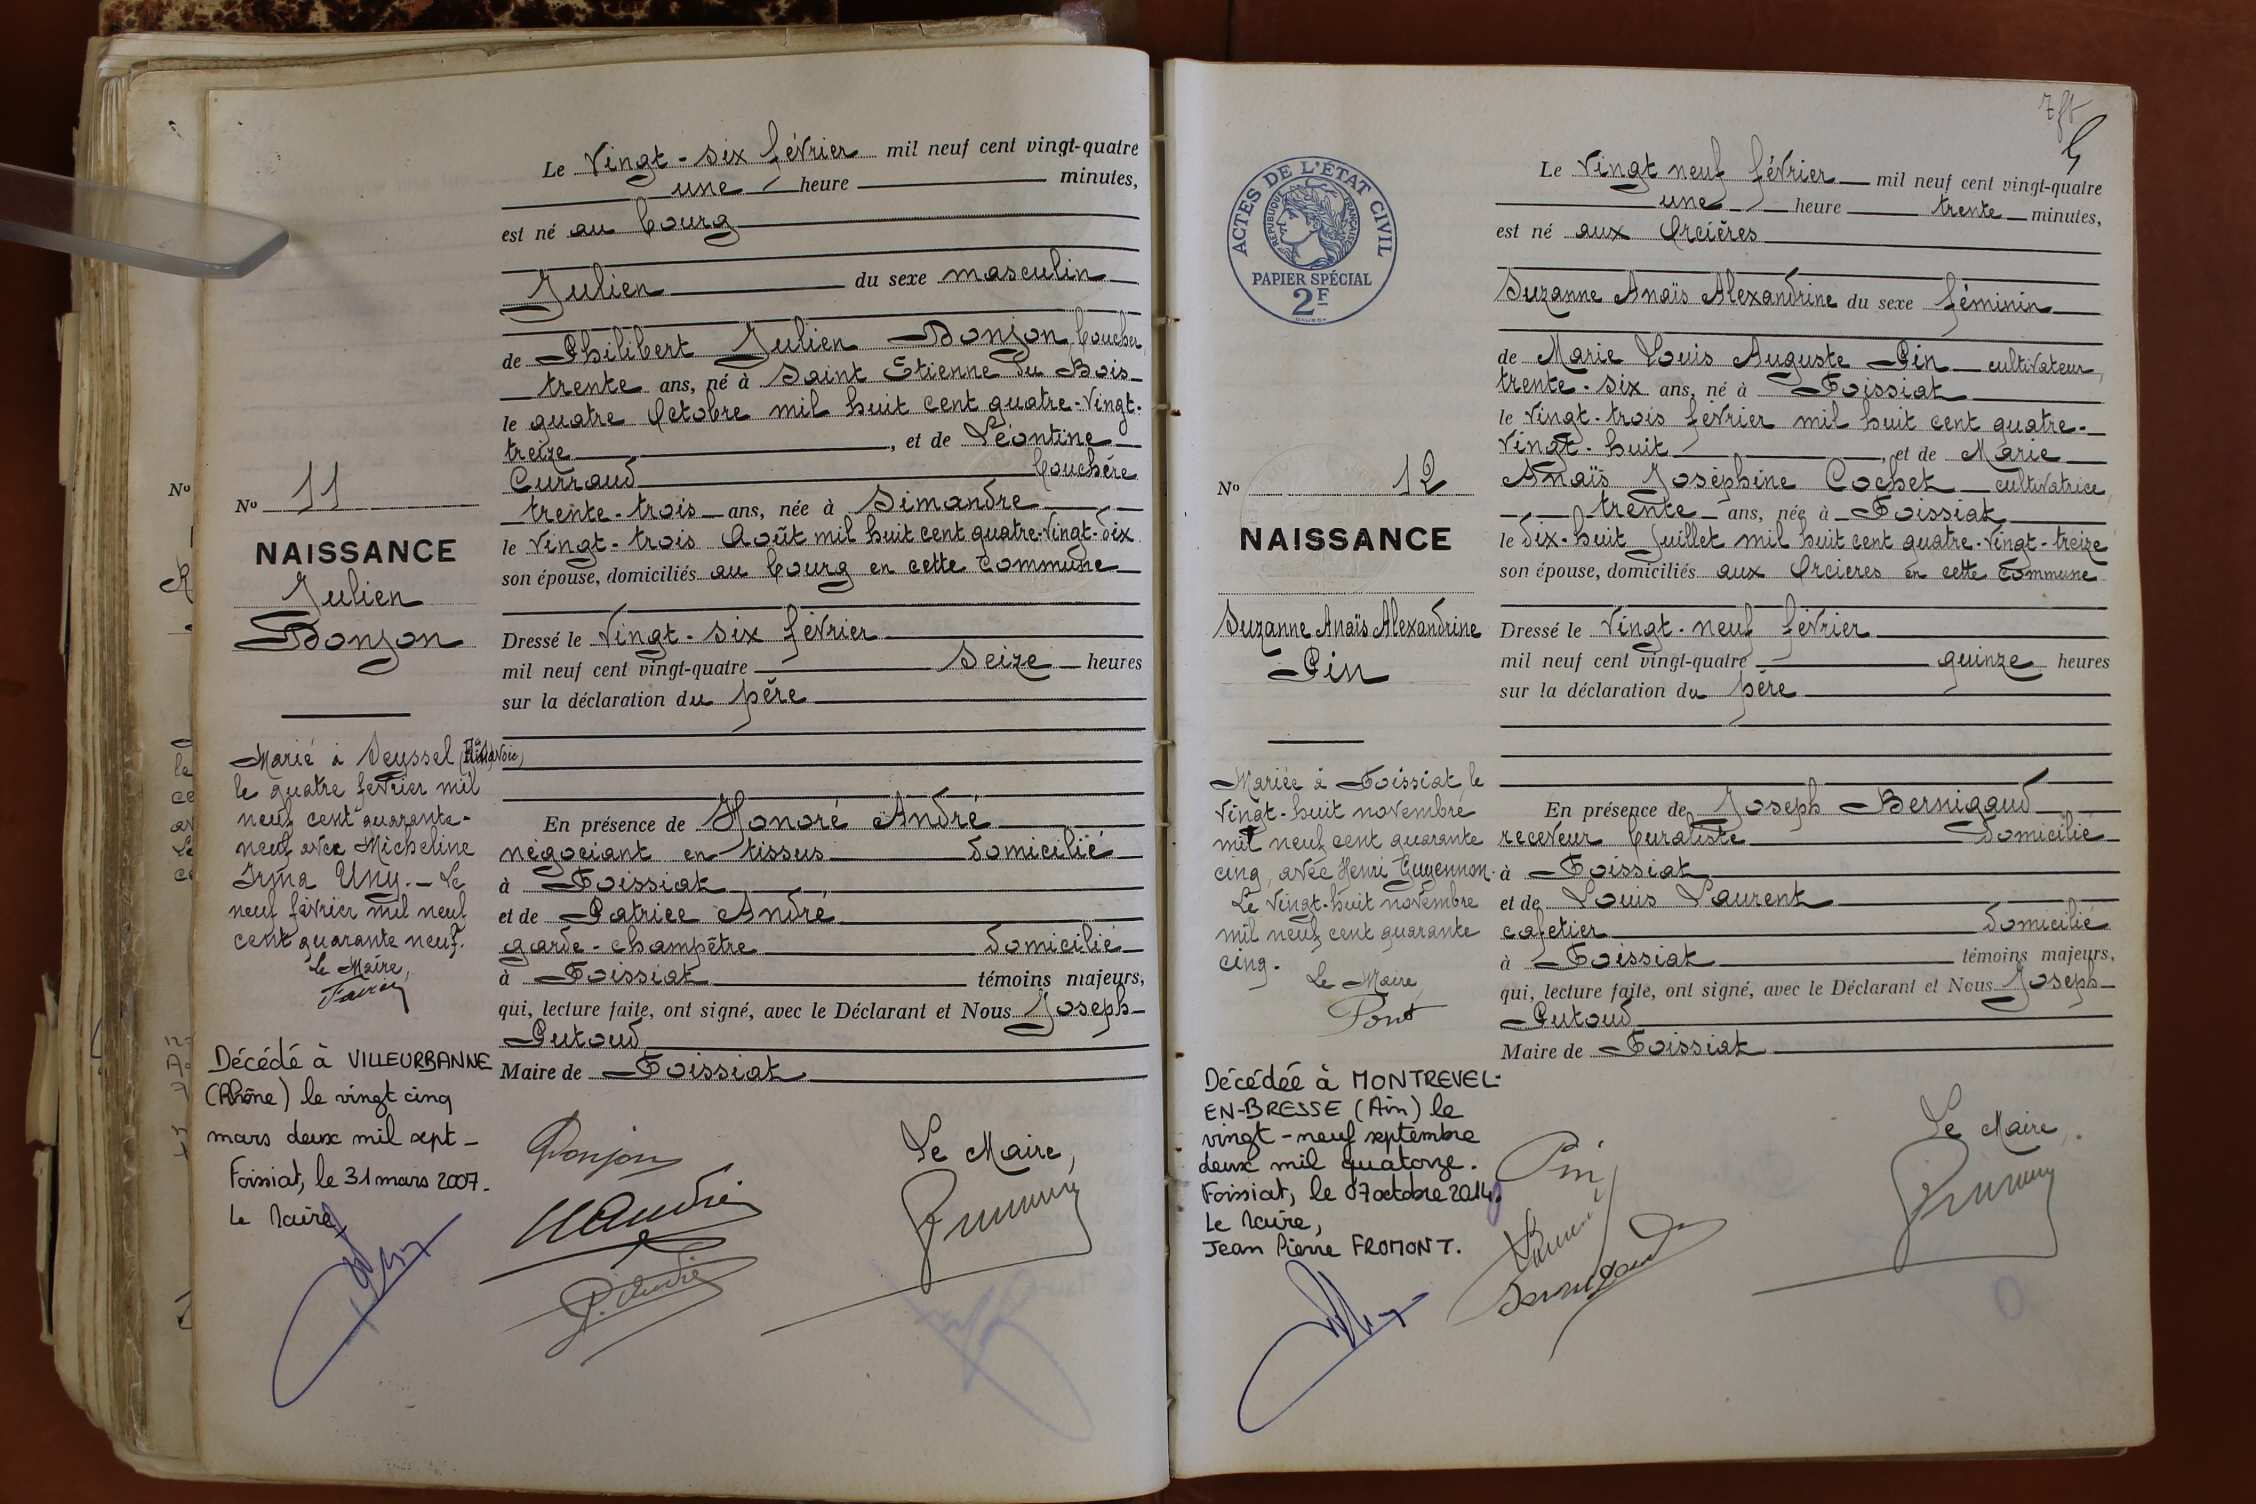 Le Vingt-six février mil neuf cent vingt-quatre
une heure minutes,
est né au bourg
Julien du sexe masculin
de Philibert Julien Donjon, boucher,
trente ans, né à Saint Etienne du Bois
le quatre Octobre mil huit cent quatre-vingt-
treize, et de Léontine
Curraud bouchère
trente-trois ans, née à Simandre
le vingt-trois Août mil huit cent quatre-vingt-dix
son épouse, domiciliés au bourg en cette commune
Dressé le vingt-six février
mil neuf cent vingt-quatre seize heures
sur la déclaration du père
En présence de Honoré André
négociant en tissus domicilié
à Foissiat
et de Patrice André
garde-champêtre domicilié
à Foissiat témoins majeurs,
qui, lecture faite, ont signé, avec le Déclarant et Nous Joseph
Putoud
Maire de Foissiat
Donjon
HAndré
P. André
Le Maire,
Nº
Nº 11
NAISSANCE
Julien
Donjon
Marié à Seyssel (Hte Savoie)
le quatre février mil
neuf cent quarante-
neuf avec Micheline
Irma Uny. - Le
neuf février mil neuf
cent quarante neuf.
Le Maire,
Décédé à VILLEURBANNE
(Rhône) le vingt cinq
mars deux mil sept -
Foissiat, le 31 mars 2007.
Le Maire,
ACTES DE L'ÉTAT CIVIL
RÉPUBLIQUE FRANÇAISE
PAPIER SPÉCIAL
2F
Nº 12
NAISSANCE
Suzanne Anaïs Alexandrine
Pin
Mariée à Foissiat, le
vingt-huit novembre
mil neuf cent quarante
cinq, avec Henri Guyennon.
Le vingt-huit novembre
mil neuf cent quarante
cinq.
Le Maire,
Pont
Décédée à MONTREVEL-
EN-BRESSE (Ain) le
vingt-neuf septembre
deux mil quatorze.
Foissiat, le 07 octobre 2014.
Le Maire,
Jean Pierre FROMONT.
Le vingt neuf février mil neuf cent vingt-quatre
une heure trente minutes,
est né aux Orcières
Suzanne Anaïs Alexandrine du sexe féminin
de Marie Louis Auguste Pin cultivateur,
trente-six ans, né à Foissiat
le vingt-trois février mil huit cent quatre-
vingt-huit, et de Marie
Anaïs Joséphine Cochet cultivatrice,
trente ans, née à Foissiat
le dix-huit Juillet mil huit cent quatre-vingt-treize
son épouse, domiciliés aux Orcieres en cette commune
Dressé le vingt-neuf février
mil neuf cent vingt-quatre quinze heures
sur la déclaration du père
En présence de Joseph Bernigaud
receveur buraliste domicilié
à Foissiat
et de Louis Laurent
cafetier domicilié
à Foissiat témoins majeurs,
qui, lecture faite, ont signé, avec le Déclarant et Nous Joseph
Putoud
Maire de Foissiat
Pin
Laurent
Bernigaud
Le Maire,